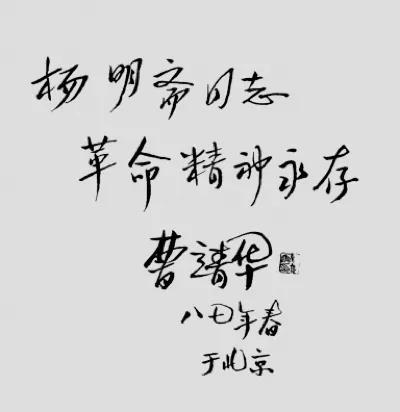 杨明斋同志
革命精神永存
曹靖华
八四年春
于北京